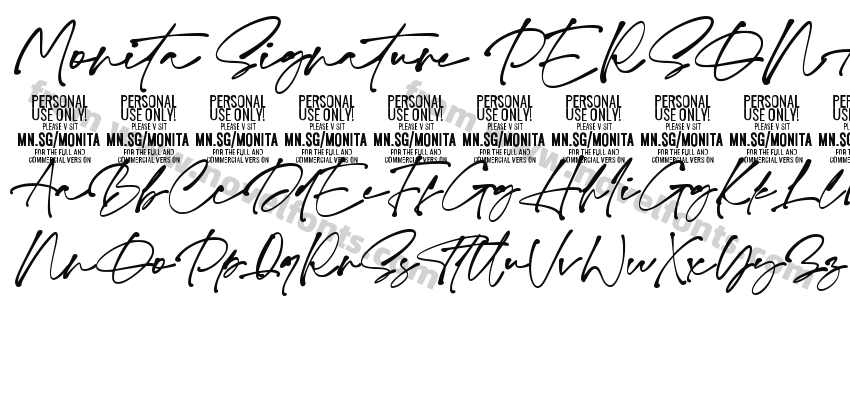 Monita Signature PERSON
PERSONAL PERSONAL PERSONAL PERSONAL PERSONAL PERSONAL PERSONAL PERSONAL PERSONAL
USE ONLY! USE ONLY! USE ONLY! USE ONLY! USE ONLY! USE ONLY! USE ONLY! USE ONLY! USE ONLY!
PLEASE V SIT PLEASE V SIT PLEASE V SIT PLEASE V SIT PLEASE V SIT PLEASE V SIT PLEASE V SIT PLEASE V SIT PLEASE V SIT
MN.SG/MONITA MN.SG/MONITA MN.SG/MONITA MN.SG/MONITA MN.SG/MONITA MN.SG/MONITA MN.SG/MONITA MN.SG/MONITA MN.SG/MONITA
FOR THE FULL AND FOR THE FULL AND FOR THE FULL AND FOR THE FULL AND FOR THE FULL AND FOR THE FULL AND FOR THE FULL AND FOR THE FULL AND FOR THE FULL AND
COMMERCIAL VERS ON COMMERCIAL VERS ON COMMERCIAL VERS ON COMMERCIAL VERS ON COMMERCIAL VERS ON COMMERCIAL VERS ON COMMERCIAL VERS ON COMMERCIAL VERS ON COMMERCIAL VERS ON
AaBbCcDdEeFfGgHhIiGgKkLl
NnOoPpQqRrSsTtUuVvWwXxYyZz
from www.novelfonts.com
from www.novelfonts.com